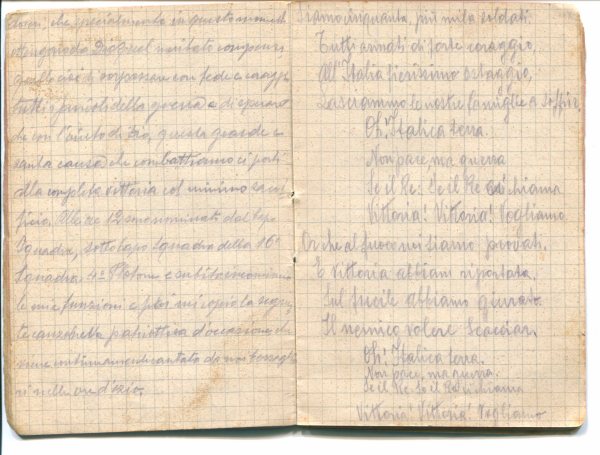 doveri, che specialmente in questo momento
di sorpassare con fede e coraggio
tutti i pericoli della guerra e di sperare
che con l'aiuto di Dio, questa grande e
santa causa che combattiamo ci porti
alla completa vittoria col minimo sacri
ficio. Alle ore 12 sono nominato dal Capo
Squadra, sottocapo squadra della 16ª
Squadra. 4º Plotone e subito incomincio
le mie funzioni e poi mi copio la seguen
te canzonetta patriottica d'occasione che
viene continuamente cantata da noi bersaglie
ri nelle ore d'ozio.
Siamo cinquanta, più mila soldati.
Tutti armati di forte coraggio,
All'Italia fierissimo ostaggio,
Lasciammo le nostre famiglie a soffrir.
Oh! Italica terra.
Non pace, ma guerra
Se il Re! Se il Re ci chiama
Vittoria! Vittoria! Vogliamo
Or che al fuoco noi siamo provati.
E Vittoria abbiam riportata,
Sul fucile abbiamo giurato
Il nemico volere scacciar.
Oh! Italica terra.
Non pace, ma guerra.
Se il Re. Se il Re ci chiama
Vittoria! Vittoria! Vogliamo